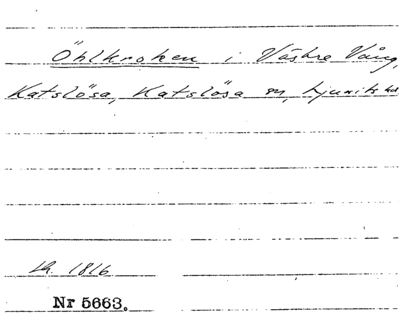 Öhlkroken i Västre Vång,
Katslösa, Katslösa sn, Ljunits hd
Lh. 1816
Nr 5663.